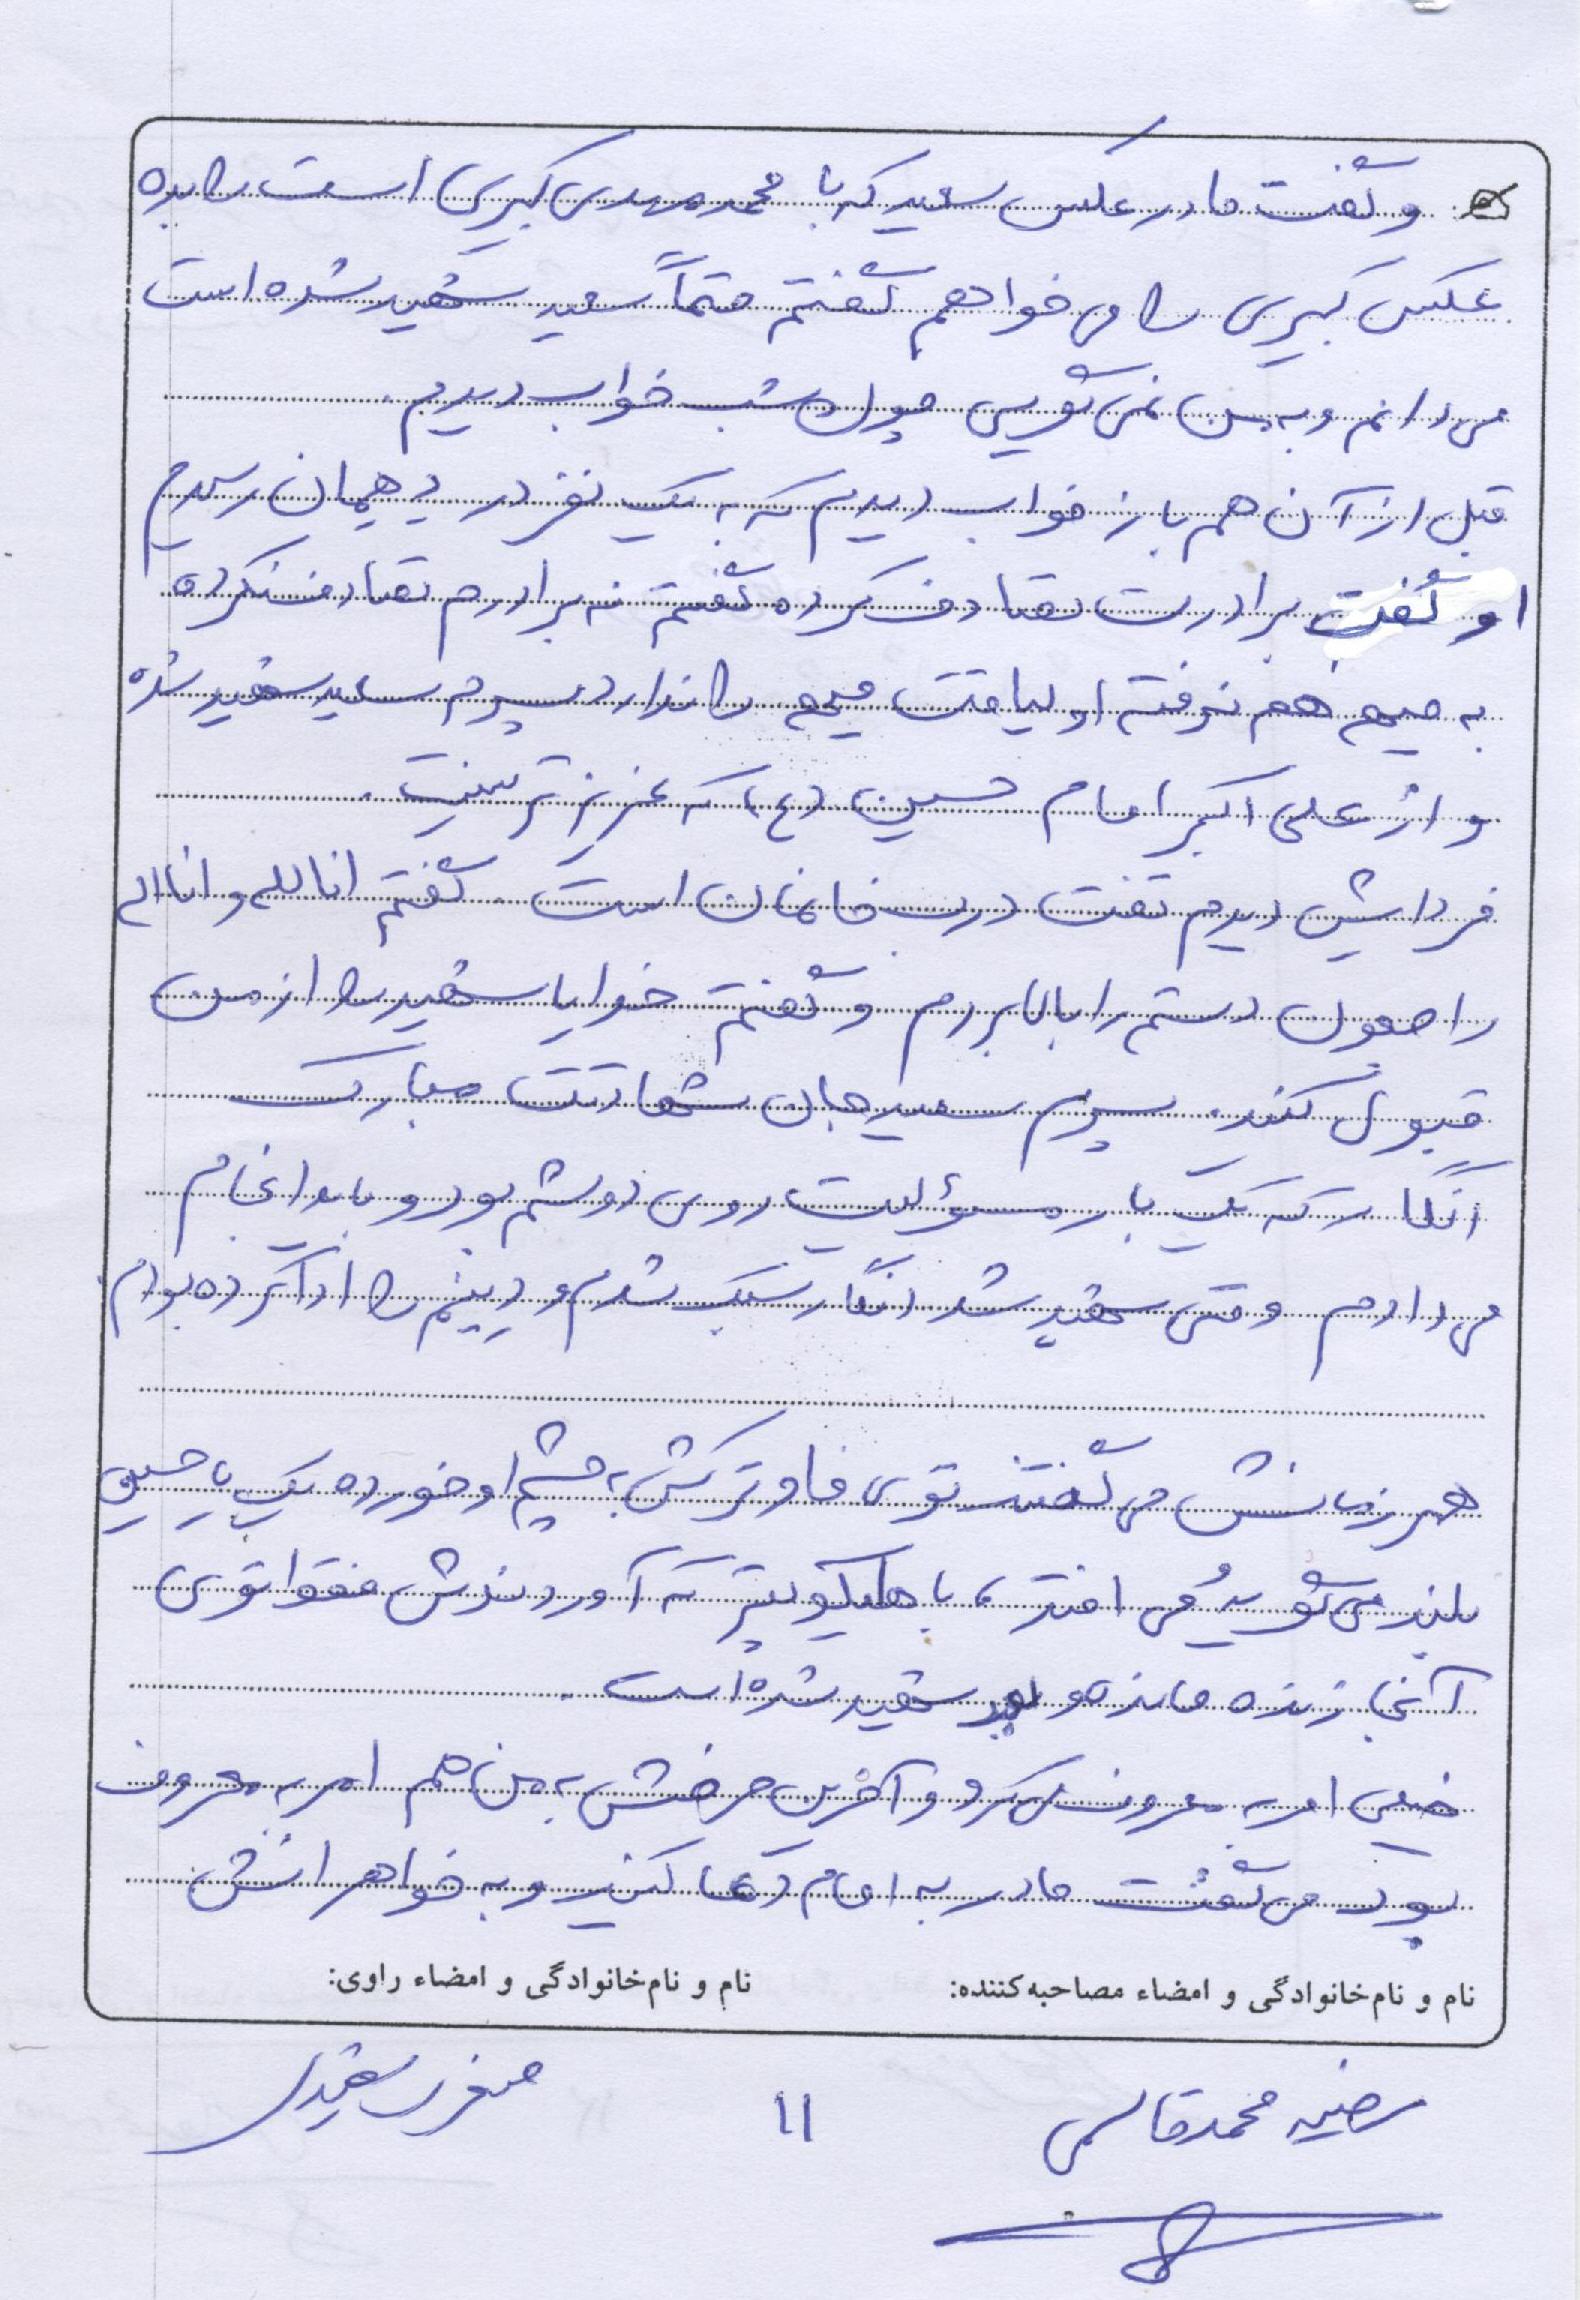 و گفت مادر عکس سعید که با محمدمهدی کبیری است را بده
عکس کبیری را می خواهم گفتم حتماً سعید شهید شده است
می دانم و به من نمی گویی چون دیشب خواب دیدم.
قبل از آن هم باز خواب دیدم که به یک نفر در رسیدم
او گفت برادرت تصادف کرده گفتم نه برادرم تصادف نکرده
به جبهه هم نرفته او لیاقت جبهه را ندارد پسرم سعید شهید شده
و از علی اکبر امام حسین (ع) که عزیزتر نیست.
فردایش دیدم گفت درب خانمان است گفتم انا لله و انا الیه
راجعون دستم را بالا بردم و گفتم خدایا شهید را از من
قبول کنید. پسرم سعید جان شهادتت مبارک
انگار که یک بار مسؤلیت روی دوشم بود و باید انجام
می دادم وقتی شهید شد انگار سبک شدم و دینم را ادا کرده بودم.
همرزمانش می گفتند توی فاو ترکش به چشم او خورده یک یا حسین
بلند می گوید و می افتد، با هلیکوپتر که آوردندش فقط توی
آنجا زنده مانده و بعد شهید شده است.
خیلی امر به معروف می کرد و آخرین حرفش به من هم امر به معروف
بود می گفت مادر به امام دعا کنید و به خواهرانش
نام و نام‌خانوادگی و امضاء مصاحبه‌کننده: نام و نام‌خانوادگی و امضاء راوی:
رضیه محمدقاسمی ۱۱ صغری سعیدی